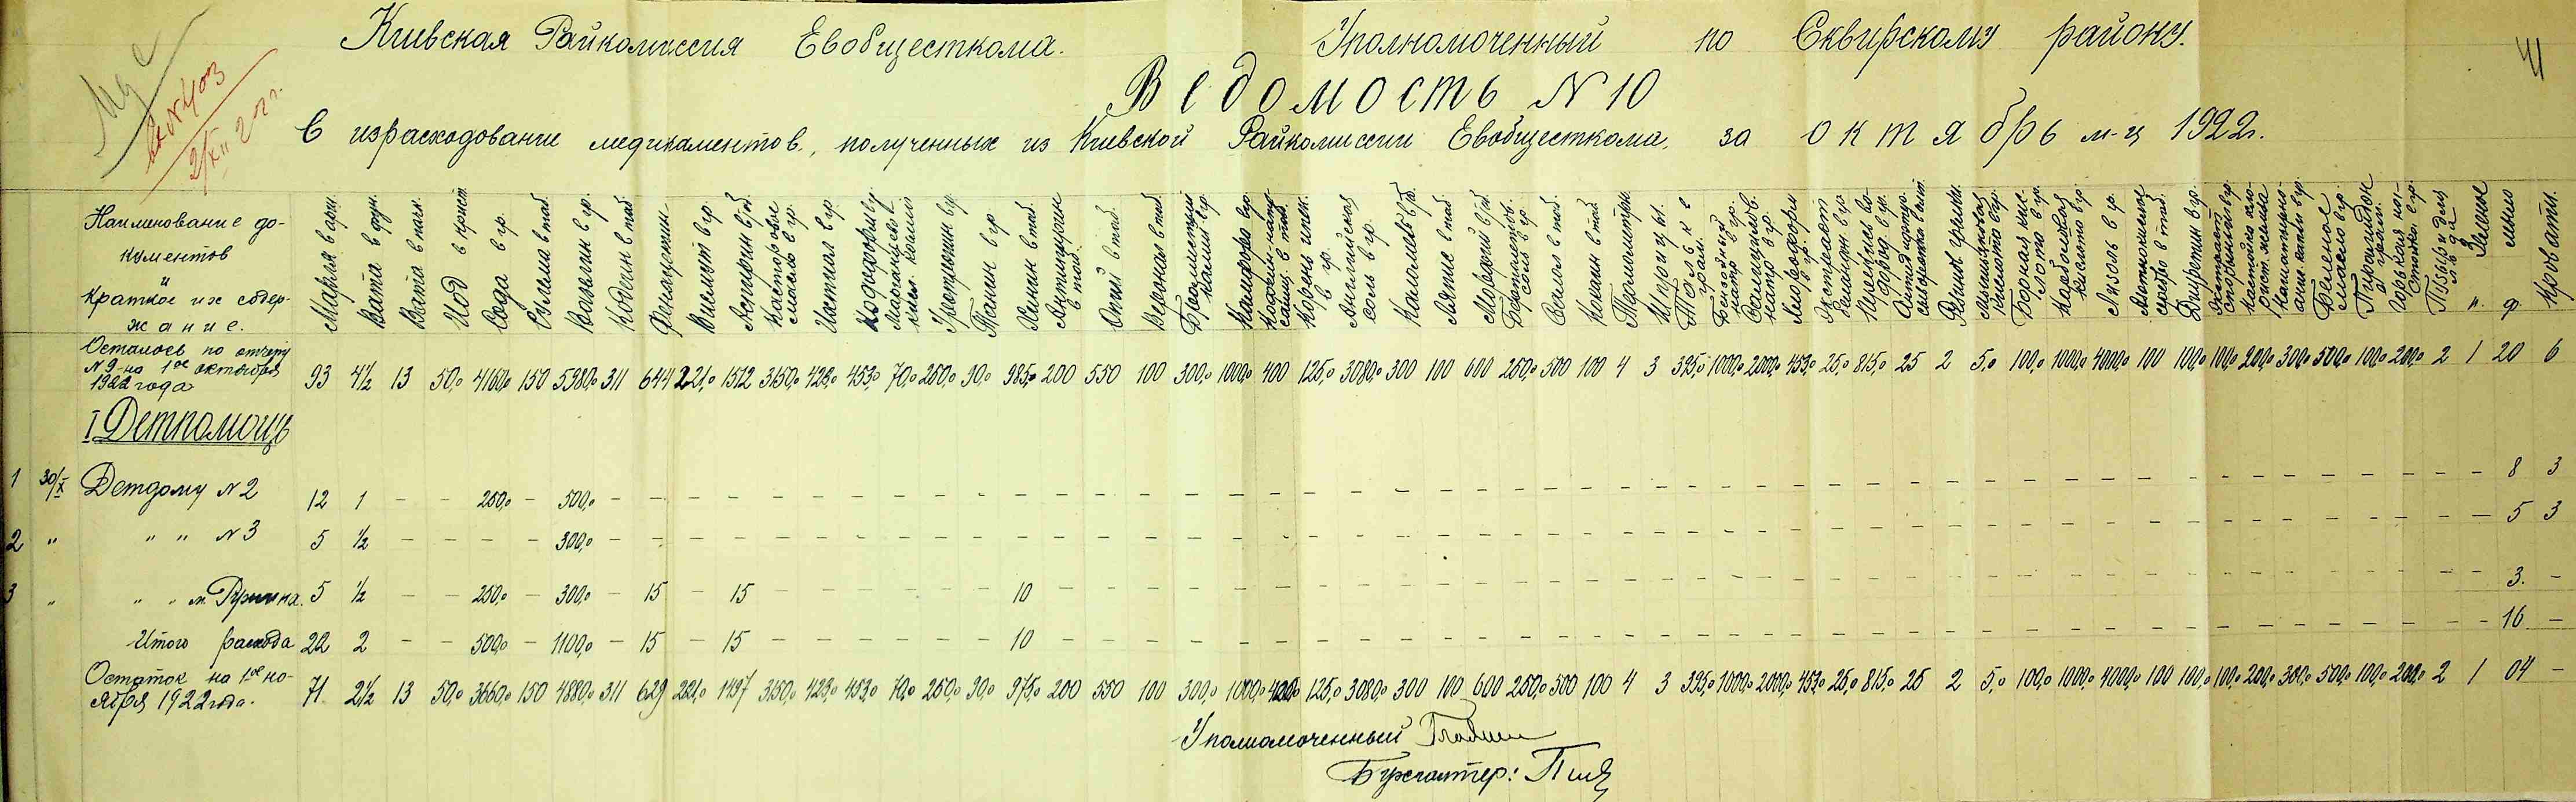 Киевская Райкомиссия Евобщесткома. Уполномоченный по Сквирскому району.
41
Ведомость N 10
О израсходование медикаментов, полученных из Киевской Райкомиссии Евобщесткома, за октябрь м-ц 1922г.
Вх N 403
2/XII 22 г.
Наименование до-
кументов
и
краткое их содер-
жание.
Марля в арш.
Вата в фун.
Вата в пач.
Иод в крист.
Сода в гр.
Сулема в таб.
Вазелин в гр.
Кодеин в таб.
Фенацетин
Висмут в гр.
Аспирин в таб.
Касторовое масло в гр.
Ихтиол в гр.
Иодоформ в гр.
Уротропин в гр.
Танин в гр.
Хинин в таб.
Антипирин в таб.
Опий в таб.
Веронал в таб.
Камфора в гр.
Корень ипек. в гр.
Английская соль в гр.
Каломель в таб.
Ляпис в таб.
Морфий в таб.
Салол в таб.
Кокаин в таб.
Термометры
Шприцы
Хлороформ в гр.
Борная кислота в гр.
Карболовая кислота в гр.
Лизол в гр.
Диуретин в гр.
Беленое масло в гр.
Пирамидон в гр.
мыло
ф.
Кровати.
Осталось по отчету
N 9 на 1ое октября
1922 года 93 4½ 13 50,0 4160,0 150 5980,0 311 644 221,0 1512 3150,0 423,0 453,0 70,0 250,0 30,0 985,0 200 550 100 300,0 1000,0 400 125,0 3080,0 300 100 600 250,0 500 100 4 3 395,0 1000,0 2000,0 453,0 25,0 815,0 25 2 5,0 100,0 1000,0 4000,0 100 100,0 100,0 200,0 300,0 500,0 100,0 200,0 2 1 20 6
I Детпомощь
1 30/X Детдому N 2 12 1 - - 250,0 - 500,0 - - - - - - - - - - - - - - - - - - - - - - - - - - - - - - - - - - - - - - - - - - - - - - - - - 8 3
2 " " " N 3 5 ½ - - - - 300,0 - - - - - - - - - - - - - - - - - - - - - - - - - - - - - - - - - - - - - - - - - - - - - - - - - 5 3
3 " " " м. Ружина. 5 ½ - - 250,0 - 300,0 - 15 - 15 - - - - - - 10 - - - - - - - - - - - - - - - - - - - - - - - - - - - - - - - - - - - - - - 3. -
Итого расхода 22 2 - - 500,0 - 1100,0 - 15 - 15 - - - - - - 10 - - - - - - - - - - - - - - - - - - - - - - - - - - - - - - - - - - - - - - 16 -
Остаток на 1ое но-
ября 1922 года. 71 2½ 13 50,0 3660,0 150 4880,0 311 629 221,0 1497 3150,0 423,0 453,0 70,0 250,0 30,0 975,0 200 550 100 300,0 1000,0 400 125,0 3080,0 300 100 600 250,0 500 100 4 3 395,0 1000,0 2000,0 453,0 25,0 815,0 25 2 5,0 100,0 1000,0 4000,0 100 100,0 100,0 200,0 300,0 500,0 100,0 200,0 2 1 04 -
Уполномоченный
Бухгалтер: